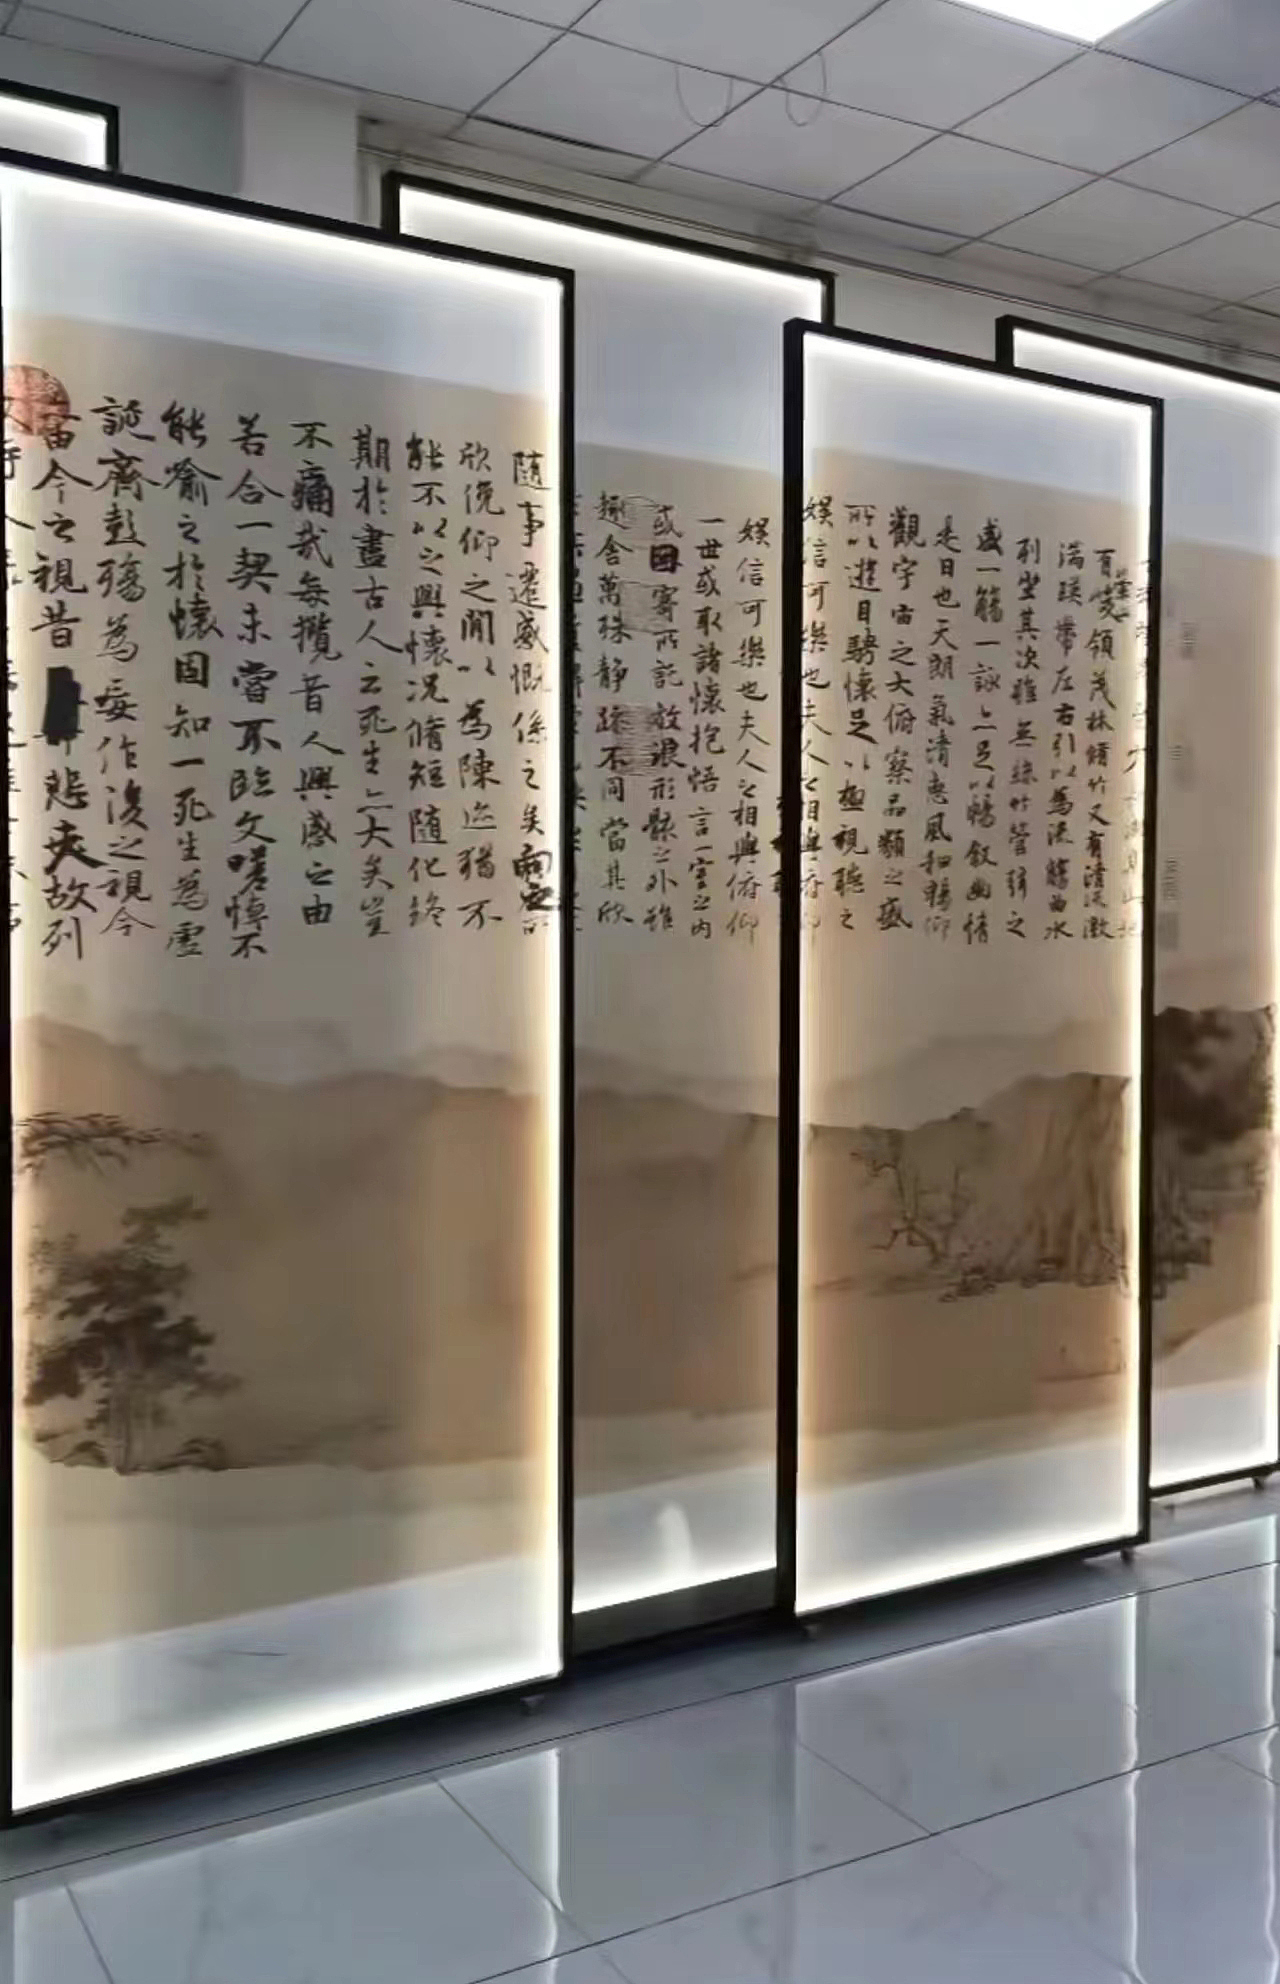 崇山
有峻領茂林脩竹又有清流激
湍暎帶左右引以為流觴曲水
列坐其次雖無絲竹管弦之
盛一觴一詠亦足以暢敘幽情
是日也天朗氣清惠風和暢仰
觀宇宙之大俯察品類之盛
所以遊目騁懷足以極視聽之
娛信可樂也夫人之相與俯仰
娛信可樂也夫人之相與俯仰
一世或取諸懷抱悟言一室之內
或因寄所託放浪形骸之外雖
趣舍萬殊靜躁不同當其欣
隨事遷感慨係之矣向之所
欣俛仰之閒以為陳迹猶不
能不以之興懷況脩短隨化終
期於盡古人云死生亦大矣豈
不痛哉每攬昔人興感之由
若合一契未嘗不臨文嗟悼不
能喻之於懷固知一死生為虛
誕齊彭殤為妄作後之視今
由今之視昔悲夫故列